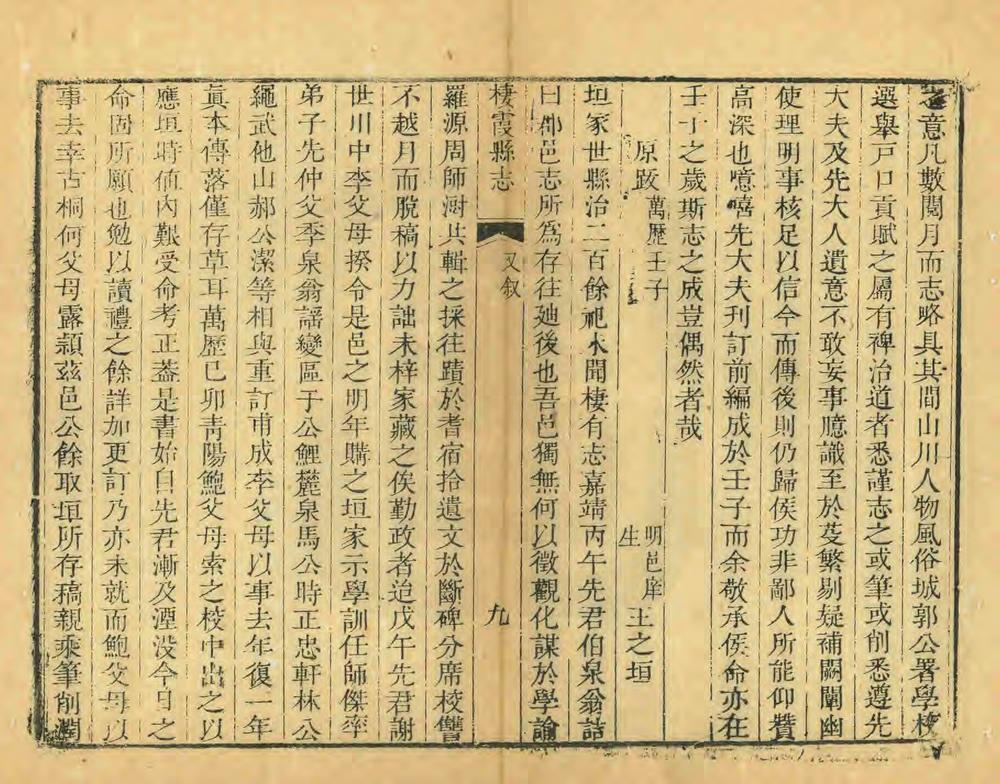 之意凡數閱月而志略具其間山川人物風俗城郭公署學校
選舉戸口貢賦之屬有裨治道者悉謹志之或筆或削悉遵先
大夫及先大人遺意不敢妄事臆識至於芟繁剔疑補闕闡幽
使理明事核足以信今而傳後則仍歸侯功非鄙人所能仰贊
高深也噫嘻先大夫刋訂前編成於壬子而余敬承侯命亦在
壬子之歲斯志之成豈偶然者哉
原跋 萬歷壬子 明邑庠生 王之垣
垣家世縣治二百餘祀未聞棲有志嘉靖丙午先君伯泉翁詰
曰郡邑志所爲存往廸後也吾邑獨無何以徵觀化謀於學諭
棲霞縣志 又叙 九
羅源周師澍共輯之採往蹟於耆宿拾遺文於斷碑分席校讐
不越月而脫稿以力詘未梓家藏之俟勤政者迨戊午先君謝
世川中李父母揆令是邑之明年購之垣家示學訓任師傑率
弟子先仲父季泉翁謡變區于公鯉麓泉馬公時正忠軒林公
繩武他山郝公潔等相與重訂甫成李父母以事去年復一年
眞本傳落僅存草耳萬歷已卯靑陽鮑父母索之校中出之以
應垣時値內艱受命考正葢是書始自先君漸及湮没今日之
命固所願也勉以讀禮之餘詳加更訂乃亦未就而鮑父母以
事去幸古桐何父母露顙茲邑公餘取垣所存稿親秉筆削潤